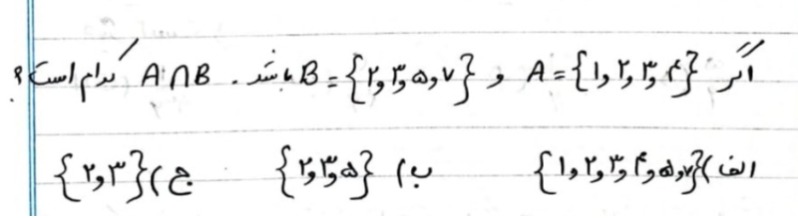 اگر A = {۱, ۲, ۳, ۴} و B = {۲, ۳, ۵, ۷} باشد. A∩B کدام است؟
الف) {۱, ۲, ۳, ۴, ۵, ۷} ب) {۲, ۳, ۵} ج) {۲, ۳}